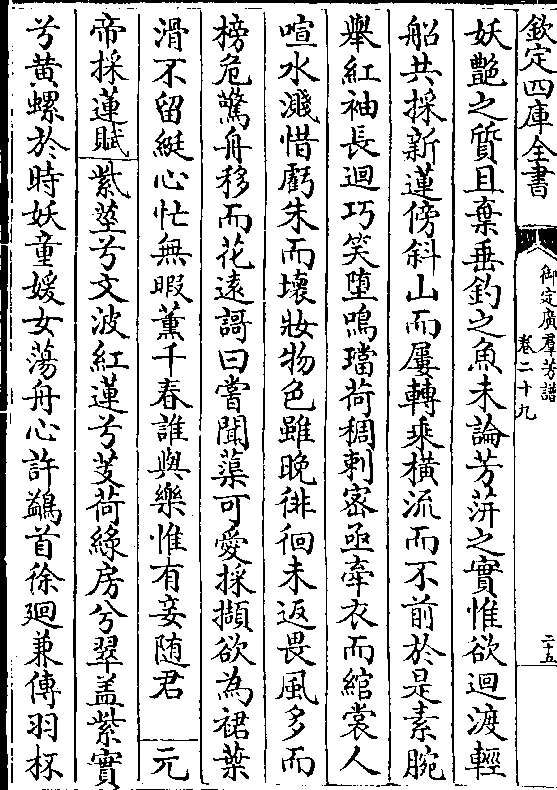 欽定四庫全書
御定廣羣芳譜
卷二十九
二十五
妖艷之質且棄垂釣之魚未論芳萍之實惟欲迴渡輕
船共採新蓮傍斜山而屢轉乘橫流而不前於是素腕
舉紅袖長迴巧笑墮鳴璫荷稠刺密亟牽衣而綰裳人
喧水濺惜虧朱而壞妝物色雖晚徘徊未返畏風多而
榜危驚舟移而花遠謌曰嘗聞蕖可愛採擷欲為裙葉
滑不留綖心忙無暇薰千春誰與樂惟有妾随君 元
帝採蓮賦 紫莖兮文波紅蓮兮芰荷綠房兮翠盖紫實
兮黃螺於時妖童媛女蕩舟心許鷁首徐廻兼傳羽杯